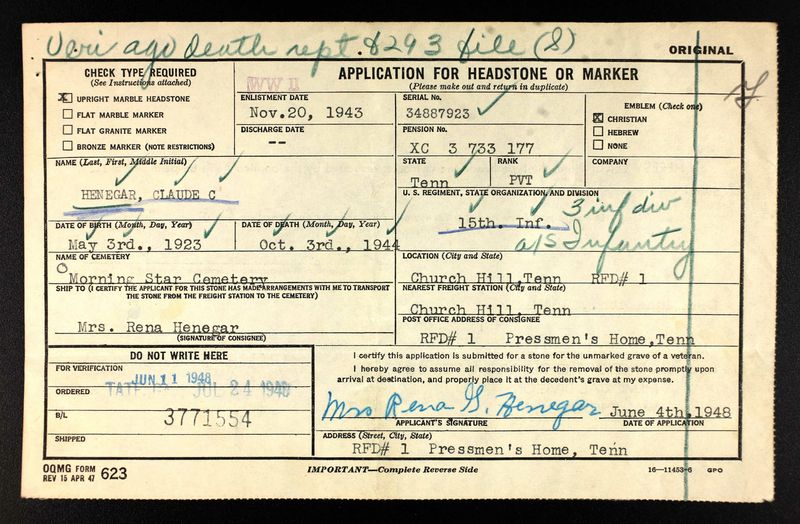 Veri ago death rept. 8293 file (S)
ORIGINAL
CHECK TYPE REQUIRED
(See Instructions attached)
X UPRIGHT MARBLE HEADSTONE
FLAT MARBLE MARKER
FLAT GRANITE MARKER
BRONZE MARKER (NOTE RESTRICTIONS)
WW II
APPLICATION FOR HEADSTONE OR MARKER
(Please make out and return in duplicate)
ENLISTMENT DATE
Nov.20, 1943
DISCHARGE DATE
--
SERIAL No.
34887923
PENSION No.
XC 3 733 177
EMBLEM (Check one)
X CHRISTIAN
HEBREW
NONE
NAME (Last, First, Middle Initial)
HENEGAR, CLAUDE C
STATE
Tenn
RANK
PVT
COMPANY
U. S. REGIMENT, STATE ORGANIZATION, AND DIVISION
15th. Inf.
3 inf div
a/S Infantry
DATE OF BIRTH (Month, Day, Year)
May 3rd., 1923
DATE OF DEATH (Month, Day, Year)
Oct. 3rd., 1944
NAME OF CEMETERY
Morning Star Cemetery
LOCATION (City and State)
Church Hill,Tenn RFD# 1
SHIP TO (I CERTIFY THE APPLICANT FOR THIS STONE HAS MADE ARRANGEMENTS WITH ME TO TRANSPORT
THE STONE FROM THE FREIGHT STATION TO THE CEMETERY)
Mrs. Rena Henegar
(SIGNATURE OF CONSIGNEE)
NEAREST FREIGHT STATION (City and State)
Church Hill, Tenn
POST OFFICE ADDRESS OF CONSIGNEE
RFD# 1 Pressmen's Home,Tenn
DO NOT WRITE HERE
FOR VERIFICATION
JUN 11 1948
ORDERED
JUL 24 1948
B/L
3771554
SHIPPED
I certify this application is submitted for a stone for the unmarked grave of a veteran.
I hereby agree to assume all responsibility for the removal of the stone promptly upon
arrival at destination, and properly place it at the decedent's grave at my expense.
Mrs Rena G. Henegar June 4th,1948
APPLICANT'S SIGNATURE DATE OF APPLICATION
ADDRESS (Street, City, State)
RFD# 1 Pressmen's Home, Tenn
OQMG FORM
REV 15 APR 47 623
IMPORTANT—Complete Reverse Side
16—11453-6 GPO